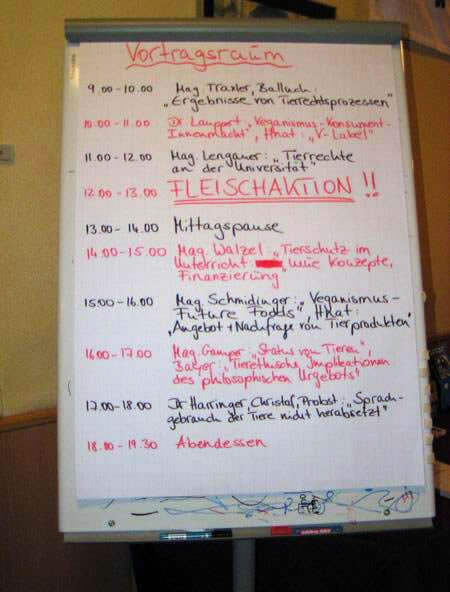 Vortragsraum
9.00-10.00 Mag. Traxler, Balluch:
„Ergebnisse von Tierrechtsprozessen"
10.00-11.00 Dr. Lauppert: „Veganismus-Konsument-
Innenmacht", Hnat: „V-Label"
11.00-12.00 Mag. Lengauer: „Tierrechte
an der Universität"
12.00-13.00 FLEISCHAKTION !!
13.00-14.00 Mittagspause
14.00-15.00 Mag. Walzel: „Tierschutz im
Unterricht: neue Konzepte,
Finanzierung"
15.00-16.00 Mag. Schmidinger: „Veganismus-
Future Foods", Hnat:
„Angebot + Nachfrage von Tierprodukten"
16.00-17.00 Mag. Gamper: „Status von Tieren",
„Tierethische Implikationen
des philosophischen Urgebots"
17.00-18.00 Dr Harringer, Christof, Probst: „Sprach-
gebrauch der Tiere nicht herabsetzt"
18.00-19.30 Abendessen